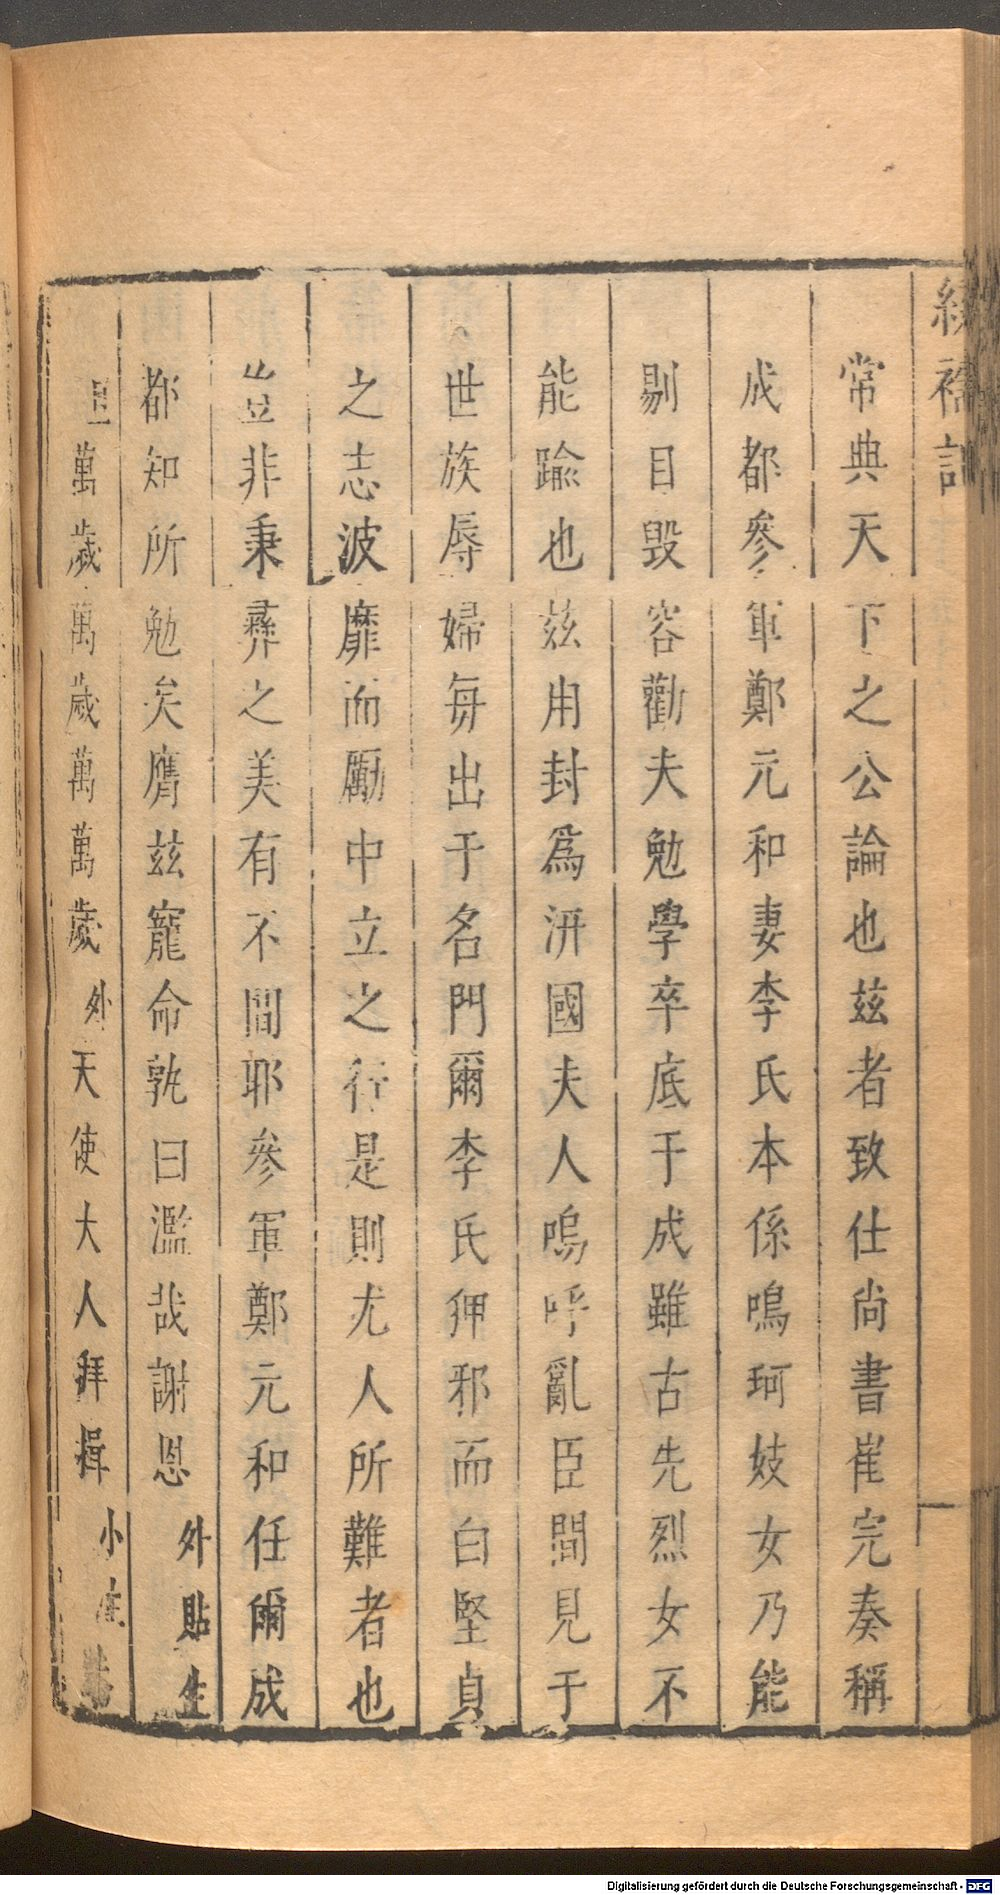 繡襦記
常典天下之公論也茲者致仕尚書崔完奏稱
成都參軍鄭元和妻李氏本係鳴珂妓女乃能
剔目毀容勸夫勉學卒底于成雖古先烈女不
能踰也茲用封爲汧國夫人嗚呼亂臣間見于
世族辱婦每出于名門爾李氏狎邪而白堅貞
之志波靡而勵中立之行是則尤人所難者也
並非秉彝之美有不間耶參軍鄭元和任爾成
都知所勉矣膺茲寵命孰曰濫哉謝恩外貼生
萬歲萬歲萬萬歲外天使大人拜揖小
Digitalisierung gefördert durch die Deutsche Forschungsgemeinschaft - DFG